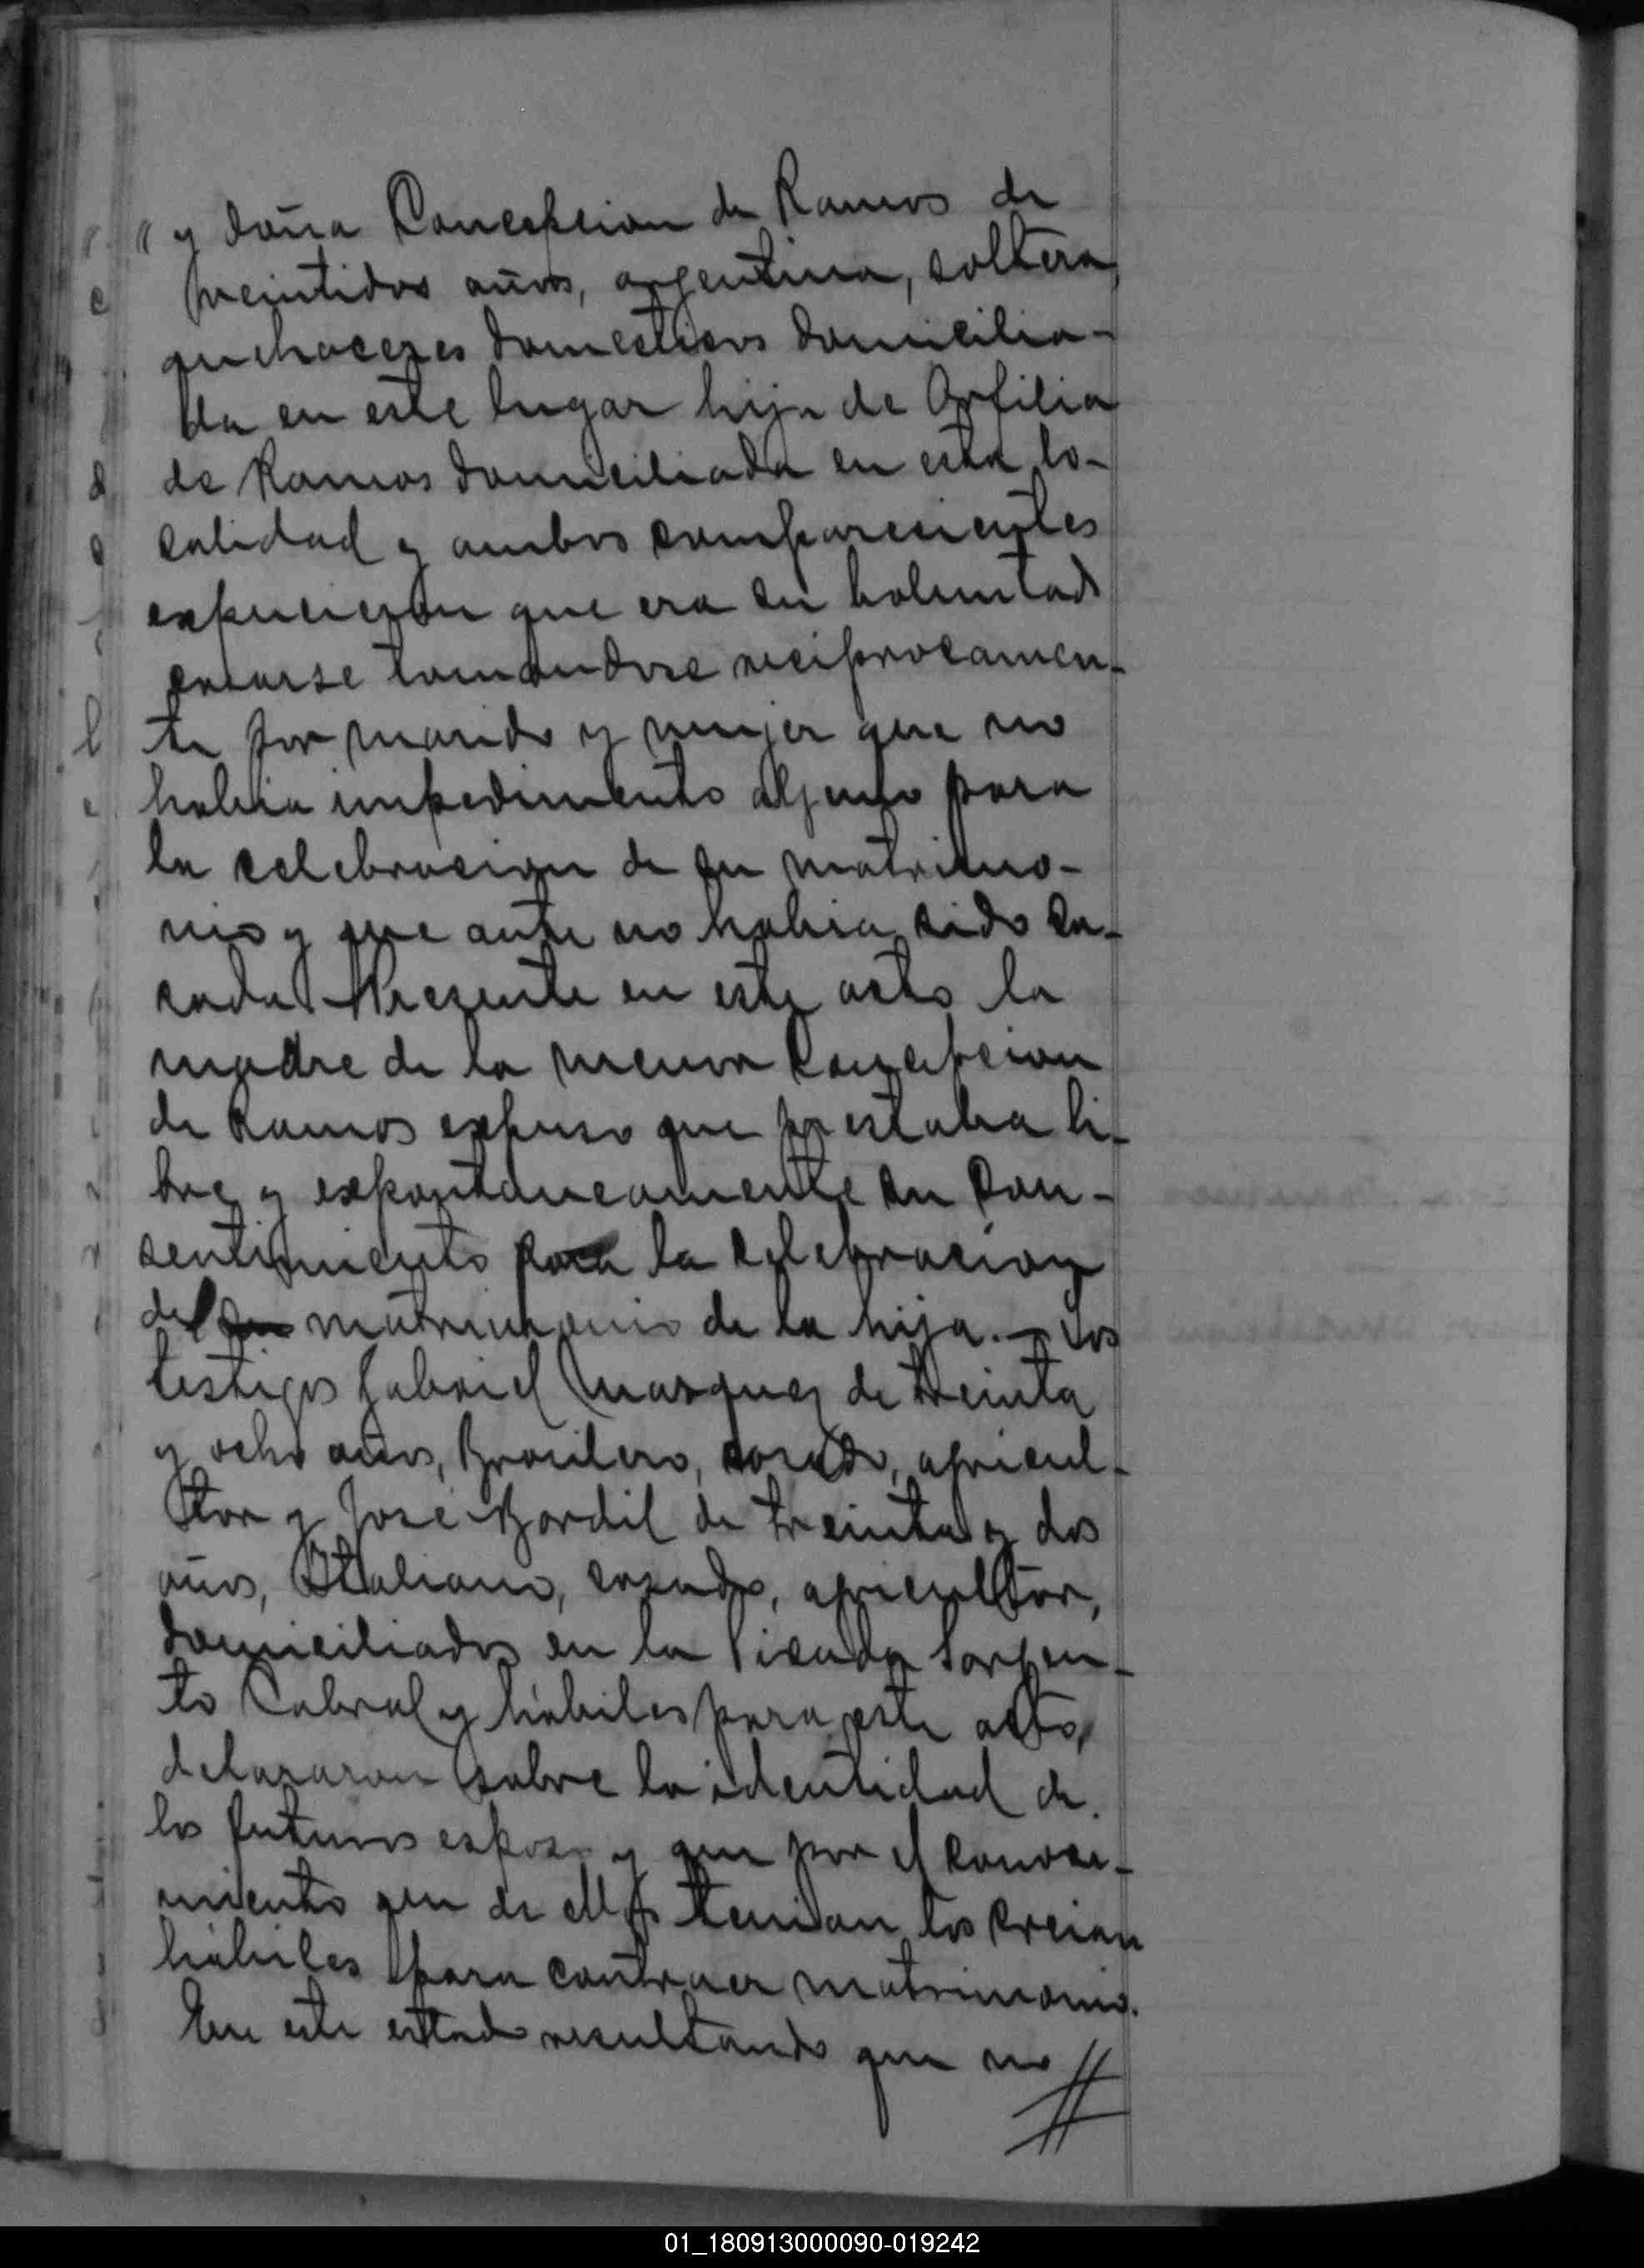 " y doña Concepcion de Ramos de
veintidos años, argentina, soltera,
quehaceres domesticos domicilia-
da en este lugar hija de Orfilia
de Ramos domiciliada en esta lo-
calidad y ambos comparecientes
expucieron que era su boluntad
casarse tomandose reciprocamen-
te por marido y mujer que no
habia impedimento alguno para
la celebracion de su matrimo-
nio y que ante no habia sido ca-
sada. Presente en este acto la
madre de la menor Concepcion
de Ramos expuso que prestaba li-
bre y expontaneamente su con-
sentimiento para la celebracion
del matrimonio de la hija. - Los
testigos Gabriel Marquez de treinta
y ocho años, Brasilero, casado, agricul-
tor y José Bordil de treinta y dos
años, Italiano, casado, agricultor,
domiciliados en la Picada Sargen-
to Cabral y hábiles para este acto,
declararon sobre la identidad de
los futuros esposos y que por el conoci-
miento que de ellos tenian los creian
hábiles para contraer matrimonio.
En este estado resultando que no //
01_180913000090-019242